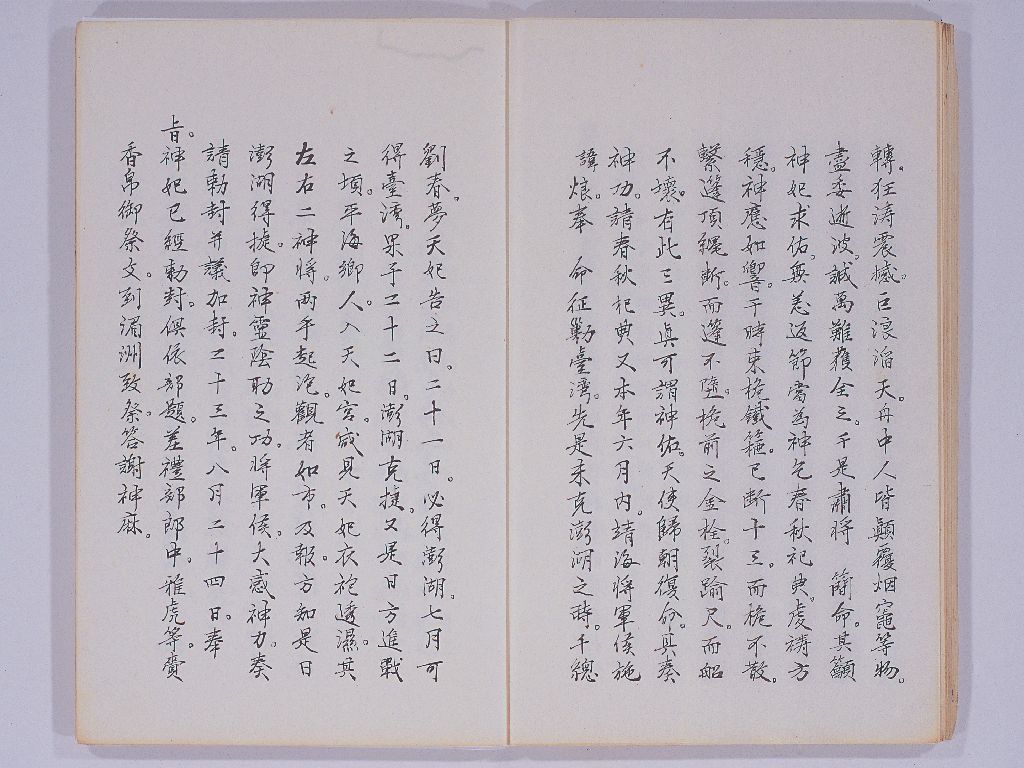 轉。狂濤震撼。巨浪滔天。舟中人皆顛覆。烟竈等物。
盡委逝波。誠萬難獲全之。于是肅將　簡命。其籲
神妃求佑。無恙返節。當為神乞春秋祀典。虔禱方
穩。神應如響。于時束桅鐵箍。已斷十三。而桅不散。
繫篷頂繩斷。而篷不墮。桅前之金栓。裂踰尺。而船
不壞。有此三異。真可謂神佑。天使歸朝復命。具奏
神功。請春秋祀典。又本年六月內。靖海將軍侯施
諱烺。奉　命征勦臺灣。先是未克澎湖之時。千總
劉春。夢天妃告之曰。二十一日。必得澎湖。七月可
得臺灣。果于二十二日。澎湖克捷。又是日方進戰
之頃。平海鄉人。入天妃宮。咸見天妃衣袍透濕。其
左右二神將。兩手起泡。觀者如市。及報。方知是日
澎湖得捷。即神靈陰助之功。將軍侯。大感神力。奏
請勅封并議加封。二十三年。八月二十四日。奉
旨。神妃已經勅封。俱依部題。差禮部郎中。雅虎等。賫
香帛御祭文。到湄洲致祭。答謝神庥。